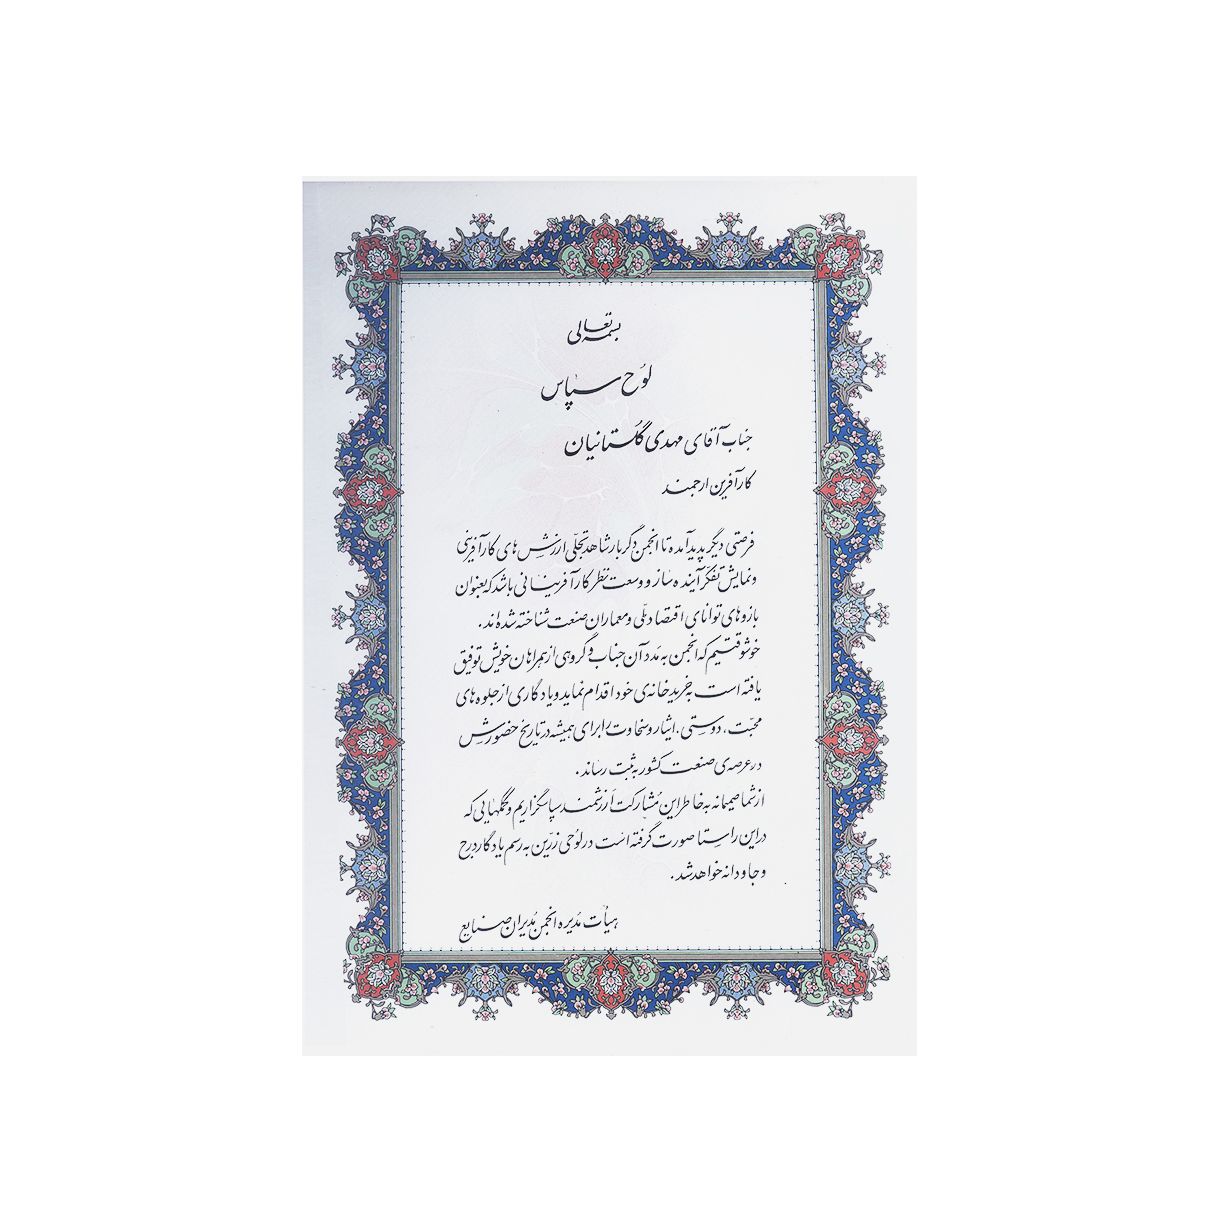 بسمه تعالی
لوح سپاس
جناب آقای مهدی گلستانیان
کارآفرین ارجمند
فرصتی دیگر پدید آمده تا انجمن دگر بار شاهد تجلّی ارزش های کارآفرینی
و نمایش تفکّر آینده ساز و وسعت نظر کارآفرینانی باشد که بعنوان
بازوهای توانای اقتصاد ملّی و معماران صنعت شناخته شده اند.
خوشوقتیم که انجمن به مدد آن جناب و گروهی از همراهان خویش توفیق
یافته است به خرید خانه‌ی خود اقدام نماید و یادگاری از جلوه های
محبّت، دوستی، ایثار و سخاوت را برای همیشه در تاریخ حضورش
در عرصه‌ی صنعت کشور به ثبت رساند.
از شما صمیمانه به خاطر این مُشارکت اَرزشمند سپاسگزاریم و کمکهایی که
در این راستا صورت گرفته است در لوُحی زرّین به رسم یادگار درج
و جاودانه خواهد شد.
هیأت مُدیره انجمن مُدیران صنایع